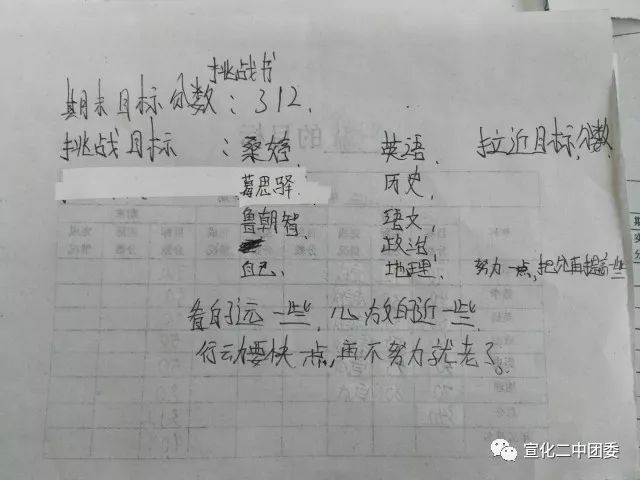 挑战书
期末目标分数：312.
挑战目标：桑婷. 英语. 拉近目标分数.
葛思驿. 历史.
鲁朝智. 语文.
政治.
自己. 地理. 努力一点,把分再提高一些
看的远一些,心放的近一些.
行动要快一点,再不努力就老了。
宣化二中团委